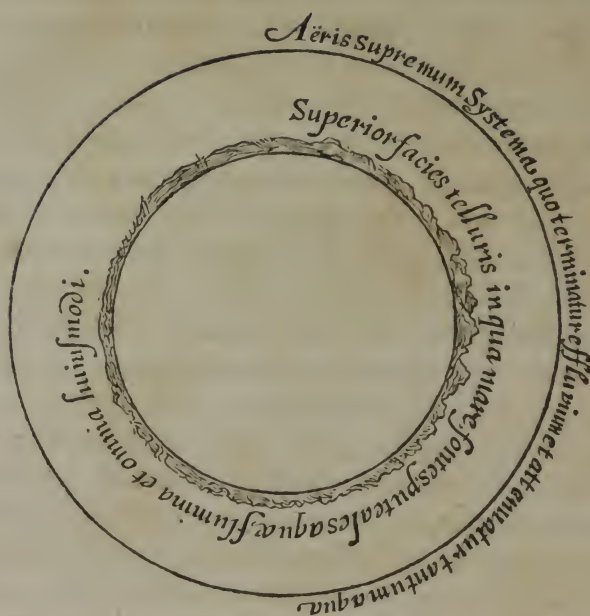 Aëris supremum Systema, quo terminatur effluvium et attenuatur tantum aqua
Superior facies telluris in qua mare fontes puteales aquæ flumina et omnia hujusmodi.